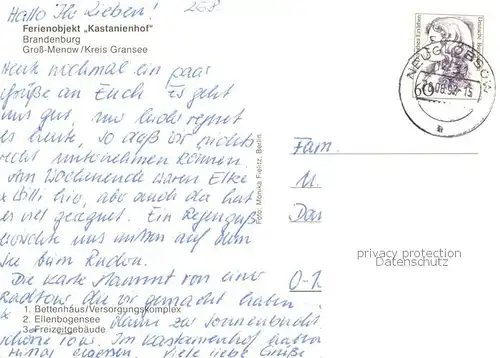 Hallo Ihr Lieben! 268
Ferienobjekt „Kastanienhof"
Brandenburg
Groß-Menow/Kreis Gransee
Heute nochmal ein paar
Grüße an Euch. Es geht
uns gut, nur leider regnet
es heute, so daß wir nichts
recht unternehmen können.
Am Wochenende waren Elke
& Willi hier, aber auch da hat
es viel geregnet. Ein Regenguß
wischte uns mitten auf dem
See beim Rudern.
Die Karte stammt von einer
Radtour die wir gemacht haben
1. Bettenhaus/Versorgungskomplex
2. Ellenbogensee
3. Freizeitgebäude
dann zu Sonnenbucht
Im Kastanienhof
viele liebe Grüße
Foto: Monika Fielitz, Berlin
NEUGLOBSOW
Fam.
U.
O-1
privacy protection
Datenschutz